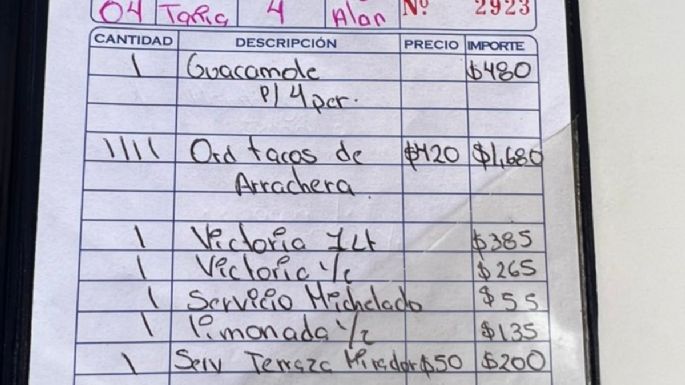 04 Tania 4 Alan Nº 2923
CANTIDAD DESCRIPCIÓN PRECIO IMPORTE
1 Guacamole $480
P/ 4 per.
1111 Ord tacos de $420 $1,680
Arrachera
1 Victoria 1Lt $385
1 Victoria 1/2 $265
1 Servicio Michelado $55
1 limonada 1/2 $135
1 Serv Terraza Mirador $50 $200